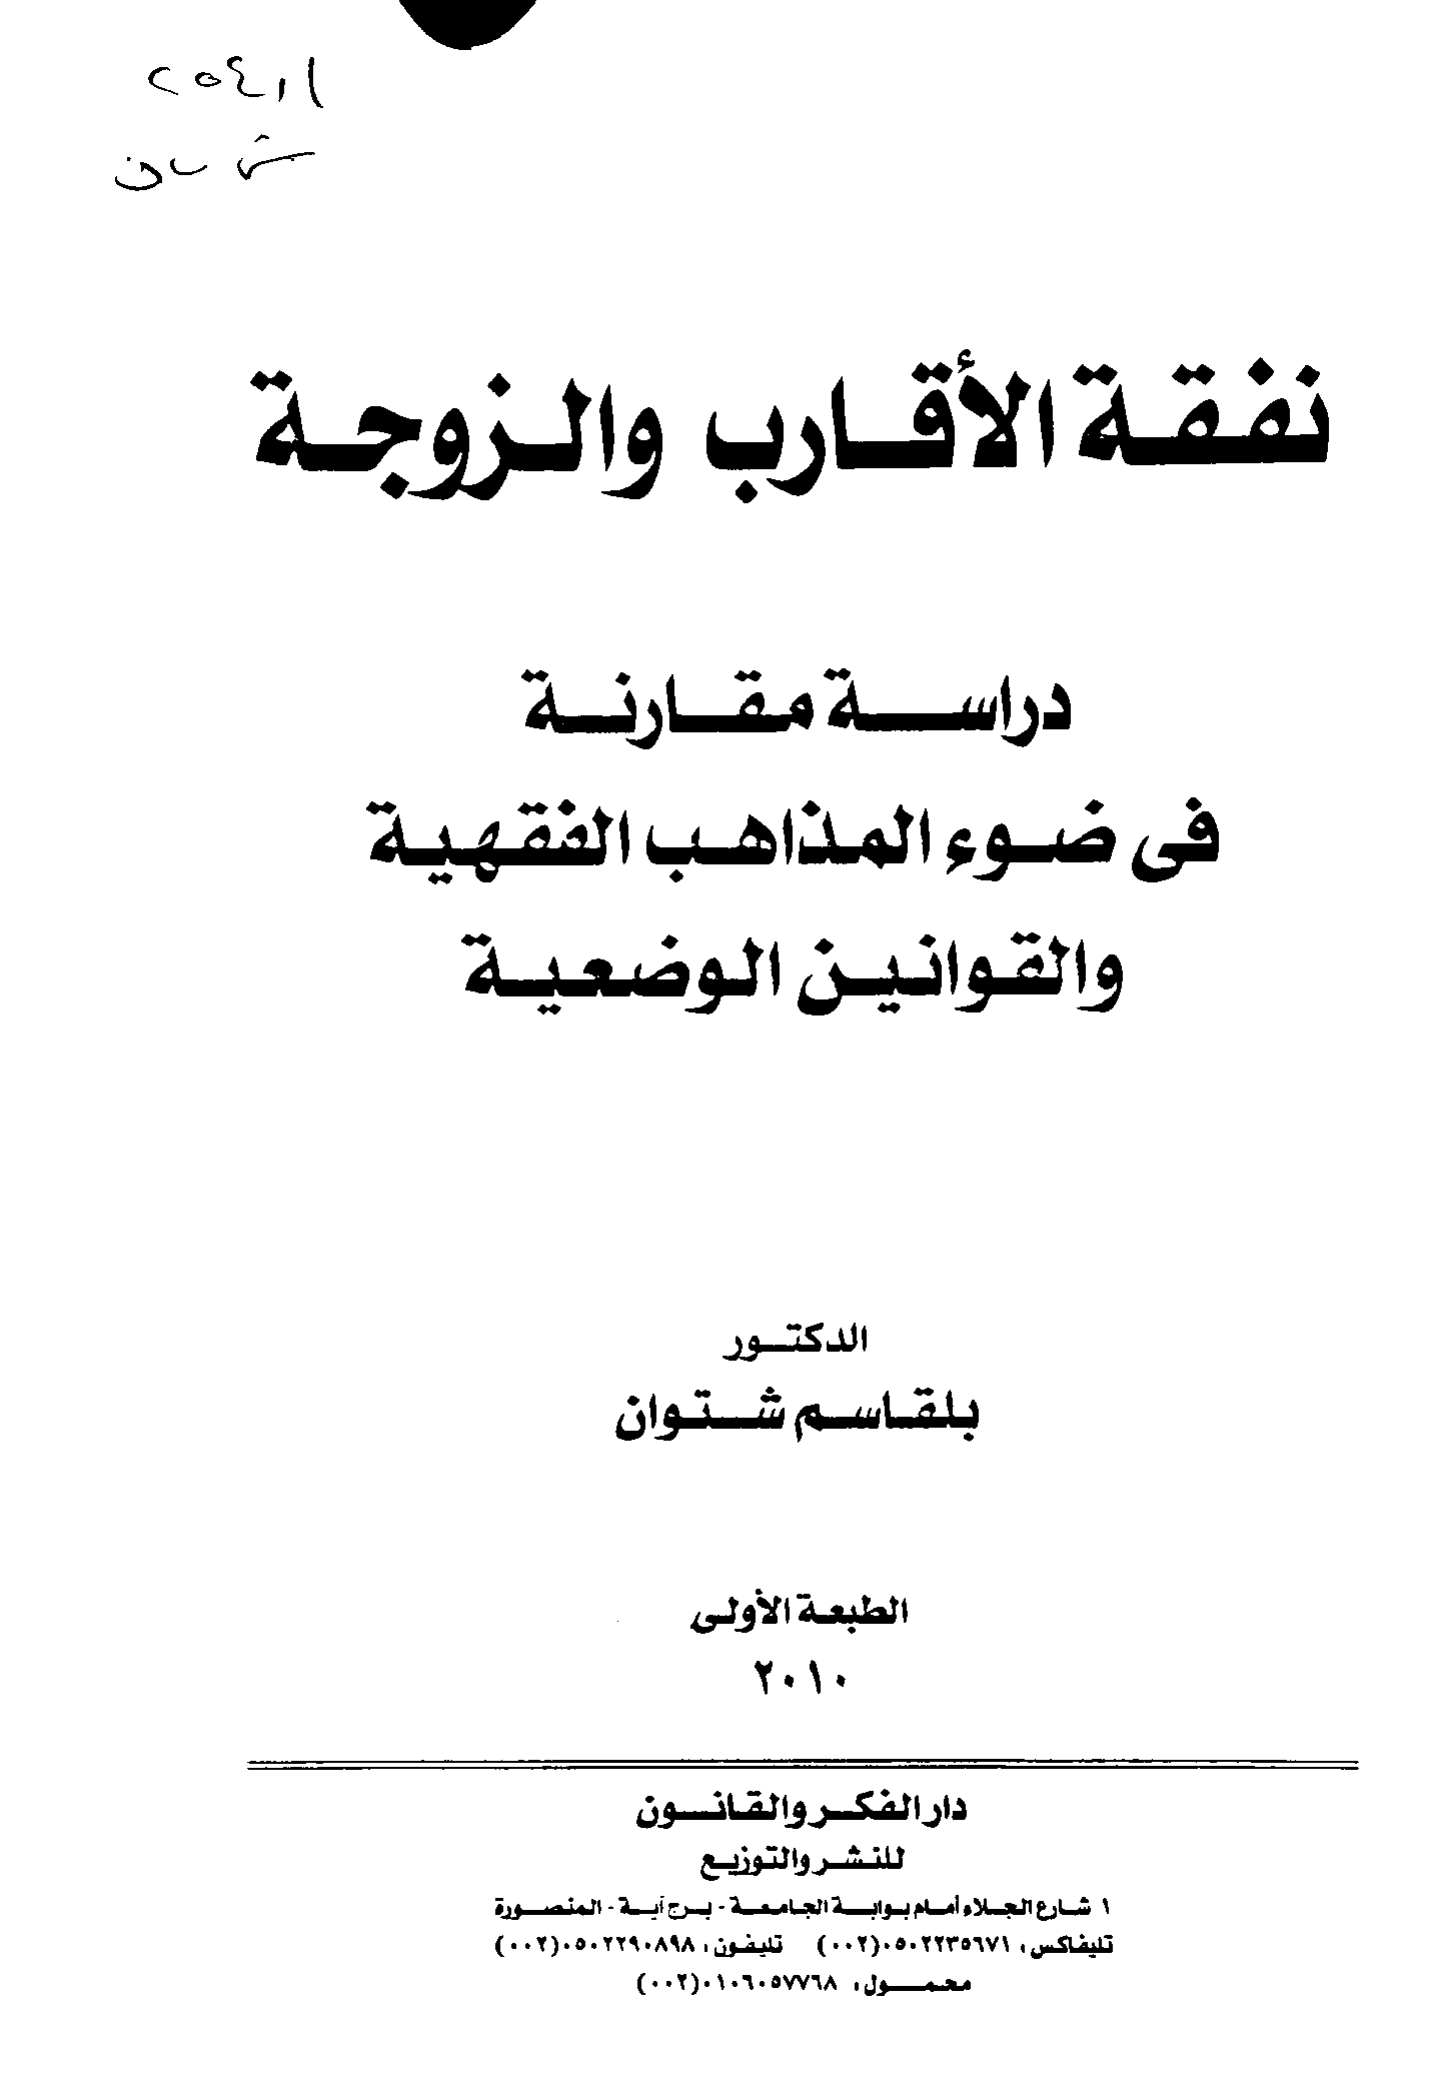 ٢٥٤,١١
نفقة الأقارب والزوجة
دراسة مقارنة
فى ضوء المذاهب الفقهية
والقوانين الوضعية
الدكتور
بلقاسم شتوان
الطبعة الأولى
٢٠١٠
دار الفكر والقانون
للنشر والتوزيع
١ شارع الجلاء أمام بوابة الجامعة - برج آية - المنصورة
تليفاكس : ٠٥٠٢٢٣٥٦٧١(٠٠٢) تليفون : ٠٥٠٢٢٩٠٨٩٨(٠٠٢)
محمول : ٠١٠٦٠٥٧٧٦٨(٠٠٢)